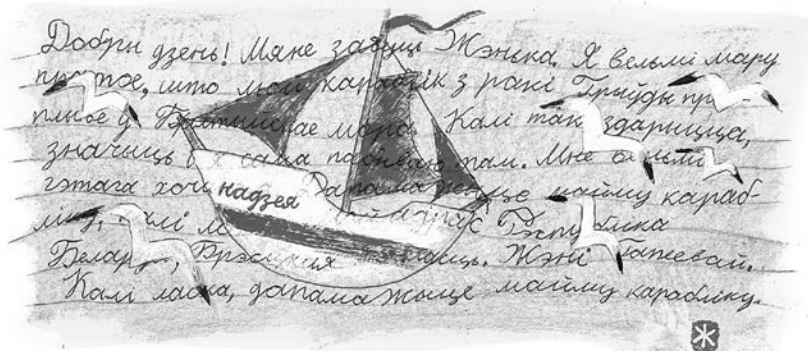 Добры дзень! Мяне завуць Жэнька. Я вельмі мару
пра тое, што мой караблік з ракі Грыўды пра-
плыве ў Балтыйскае мора. Калі так здарыцца,
значыць і я сама пабываю там. Мне вельмі
гэтага хочацца. Дапамажыце майму караб-
ліку, калі Рэспубліка
Беларусь, Брэсцкая вобласць. Жэні
Калі ласка, дапамажыце майму карабліку.
надзея